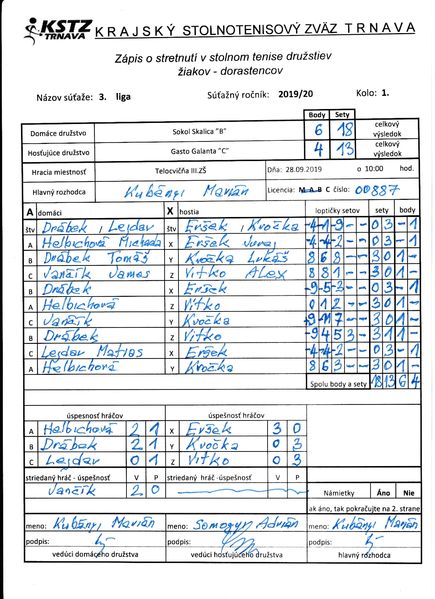 KSTZ TRNAVA KRAJSKÝ STOLNOTENISOVÝ ZVÄZ TRNAVA
Zápis o stretnutí v stolnom tenise družstiev
žiakov - dorastencov
Názov súťaže: 3. liga Súťažný ročník: 2019/20 Kolo: 1.
Body Sety
Domáce družstvo Sokol Skalica "B" 6 18 celkový výsledok
Hosťujúce družstvo Gasto Galanta "C" 4 13 celkový výsledok
Hracia miestnosť Telocvičňa III.ZŠ Dňa: 28.09.2019 o 10:00 hod.
Hlavný rozhodca Kubányi Marián Licencia: M A B C číslo: 00887
A domáci X hostia loptičky setov sety body
štv Drábek, Lejdav štv Eršek, Kvočka -4-19-- 03 -1
A Helbichová Michada X Eršek Juraj -4-42-- 03 -1
B Drábek Tomáš Y Kvočka Lukáš 868-- 30 1-
C Vančík James Z Vitko Alex 881-- 30 1-
B Drábek X Eršek -9-53-- 03 -1
A Helbichová Z Vitko 012-- 30 1-
C Vančík Y Kvočka 30 1-
B Drábek Z Vitko -9453- 31 1-
C Lejdav Matias X Eršek -4-42-- 03 -1
A Helbichová Y Kvočka 863-- 30 1-
Spolu body a sety 18 13 6 4
úspesnosť hráčov úspešnosť hráčov
A Helbichová 2 1 X Eršek 3 0
B Drábek 2 1 Y Kvočka 0 3
C Lejdav 0 1 Z Vitko 0 3
striedaný hráč - úspešnosť V P striedaný hráč - úspešnosť V P
Vančík 2 0 Námietky Áno Nie
ak áno, tak pokračujte na 2. strane
meno: Kubányi Marián meno: Somogyi Adrián meno: Kubányi Marián
podpis: podpis: podpis:
vedúci domáceho družstva vedúci hosťujúceho družstva hlavný rozhodca